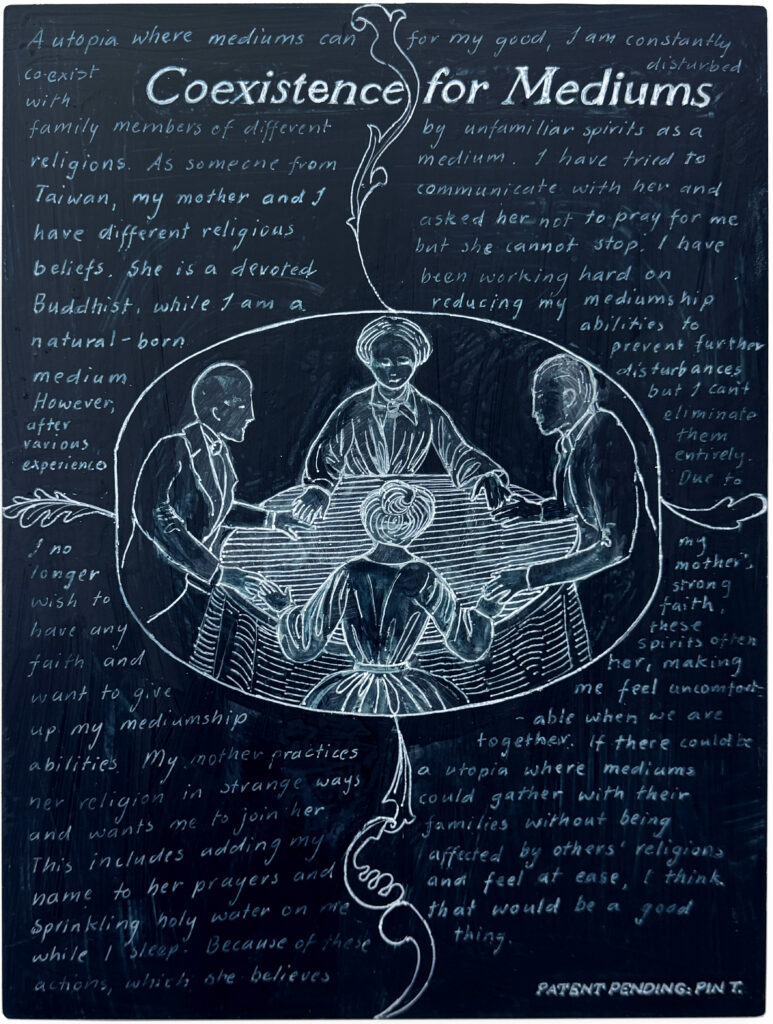 Coexistence for Mediums
A utopia where mediums can
co-exist
with
family members of different
religions. As someone from
Taiwan, my mother and I
have different religious
beliefs. She is a devoted
Buddhist, while I am a
natural-born
medium.
However,
after
various
experience
I no
longer
wish to
have any
faith and
want to give
up my mediumship
abilities. My mother practices
her religion in strange ways
and wants me to join her
This includes adding my
name to her prayers and
sprinkling holy water on me
while I sleep. Because of these
actions, which she believes
for my good, I am constantly
disturbed
by unfamiliar spirits as a
medium. I have tried to
communicate with her and
asked her not to pray for me
but she cannot stop. I have
been working hard on
reducing my mediumship
abilities to
prevent further
disturbances
but I can't
eliminate
them
entirely.
Due to
my
mother's
strong
faith,
these
spirits often
her, making
me feel uncomfort-
- able when we are
together. If there could be
a utopia where mediums
could gather with their
families without being
affected by others' religions
and feel at ease, I think
that would be a good
thing.
PATENT PENDING: PIN T.